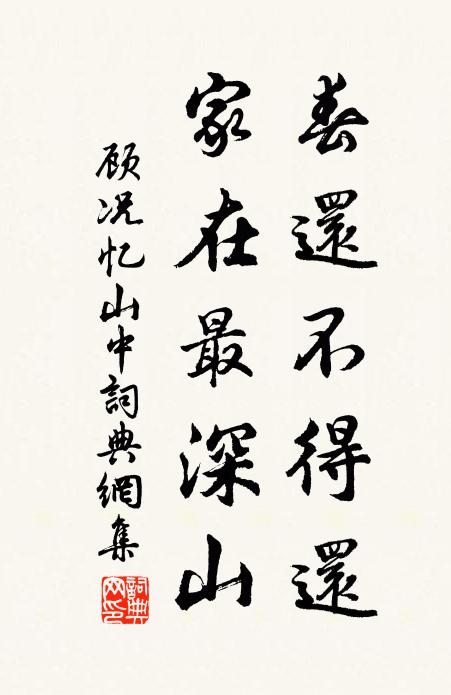 春還不得還
家在最深山
顾况忆山中詞典網集
詞典网印